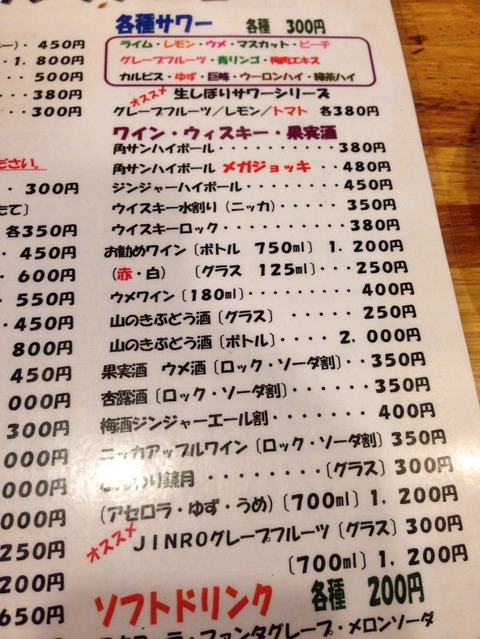 各種サワー 各種 300円
ライム・レモン・ウメ・マスカット・ピーチ
グレープフルーツ・青リンゴ・梅肉エキス
カルピス・ゆず・巨峰・ウーロンハイ・緑茶ハイ
オススメ 生しぼりサワーシリーズ
グレープフルーツ/レモン/トマト 各380円
ワイン・ウィスキー・果実酒
角サンハイボール・・・・・・・・・・380円
角サンハイボール メガジョッキ・・480円
ジンジャーハイボール・・・・・・・450円
ウイスキー水割り(ニッカ)・・・・350円
ウイスキーロック・・・・・・・・・380円
お勧めワイン〔ボトル 750ml〕1,200円
(赤・白) 〔グラス 125ml〕・・・250円
ウメワイン〔180ml〕・・・・・・・400円
山のきぶどう酒〔グラス〕・・・・・250円
山のきぶどう酒〔ボトル〕・・・2,000円
果実酒 ウメ酒〔ロック・ソーダ割〕・・350円
杏露酒〔ロック・ソーダ割〕・・・・・350円
梅酒ジンジャーエール割・・・・・・400円
ニッカアップルワイン〔ロック・ソーダ割〕350円
鏡月・・・・・・・・〔グラス〕300円
(アセロラ・ゆず・うめ)〔700ml〕1,200円
オススメ JINROグレープフルーツ〔グラス〕300円
〔700ml〕1,200円
ソフトドリンク 各種 200円
ファンタグレープ・メロンソーダ
450円
1,800円
500円
380円
300円
ださい。
300円
各350円
450円
600円
550円
450円
800円
450円
000円
300円
000円
000円
000円
250円
200円
650円